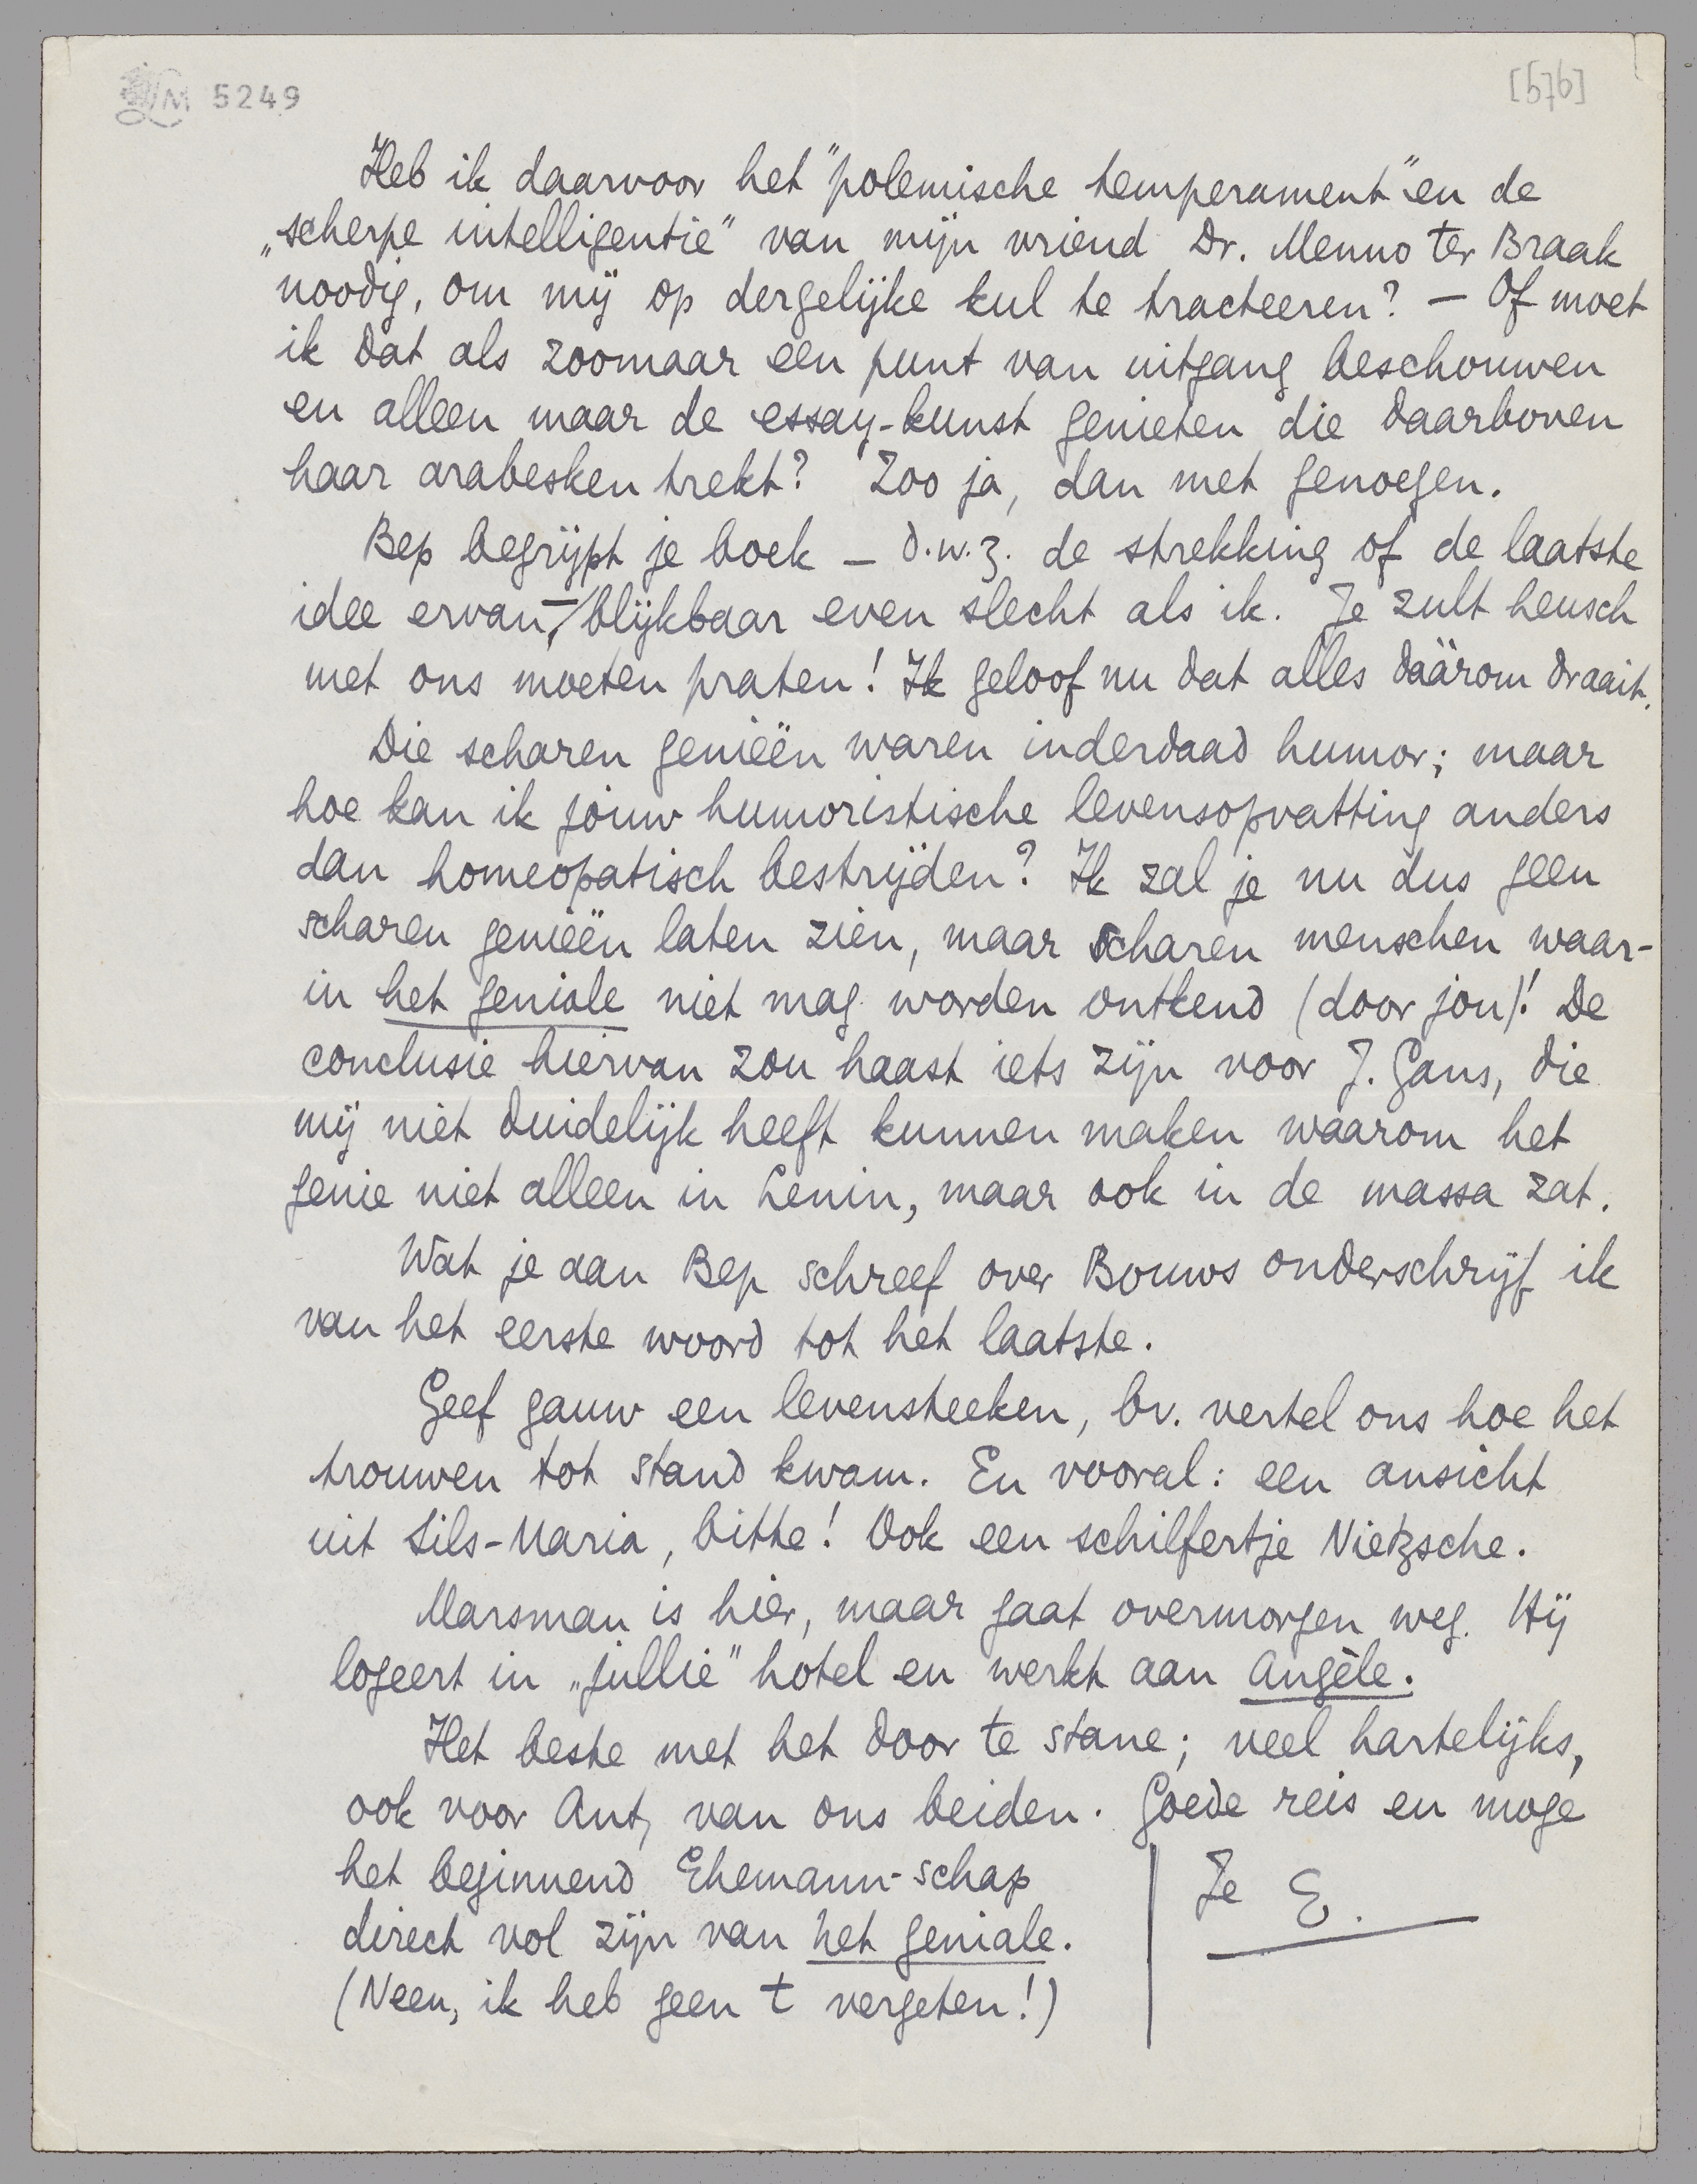 LM 5249
[576]
Heb ik daarvoor het "polemische temperament" en de
„scherpe intelligentie" van mijn vriend Dr. Menno ter Braak
noodig, om mij op dergelijke kul te tracteeren? – Of moet
ik dat als zoomaar een punt van uitgang beschouwen
en alleen maar de essay-kunst genieten die daarboven
haar arabesken trekt? Zoo ja, dan met genoegen.
Bep begrijpt je boek – d.w.z. de strekking of de laatste
idee ervan – blijkbaar even slecht als ik. Je zult heusch
met ons moeten praten! Ik geloof nu dat alles däärom draait.
Die scharen genieën waren inderdaad humor; maar
hoe kan ik jóuw humoristische levensopvatting anders
dan homeopatisch bestrijden? Ik zal je nu dus geen
scharen genieën laten zien, maar scharen menschen waar-
in het geniale niet mag worden ontkend (door jou)! De
conclusie hiervan zou haast iets zijn voor J. Gans, die
mij niet duidelijk heeft kunnen maken waarom het
genie niet alleen in Lenin, maar ook in de massa zat.
Wat je aan Bep schreef over Bouws onderschrijf ik
van het eerste woord tot het laatste.
Geef gauw een levensteeken, bv. vertel ons hoe het
trouwen tot stand kwam. En vooral: een ansicht
uit Sils-Maria, bitte! Ook een schilfertje Nietzsche.
Marsman is hier, maar gaat overmorgen weg. Hij
logeert in „jullie" hotel en werkt aan Angèle.
Het beste met het door te stane; veel hartelijks,
ook voor Ant, van ons beiden. Goede reis en moge
het beginnend Ehemann-schap
direct vol zijn van het geniale.
(Neen, ik heb geen t vergeten!)
Je E.